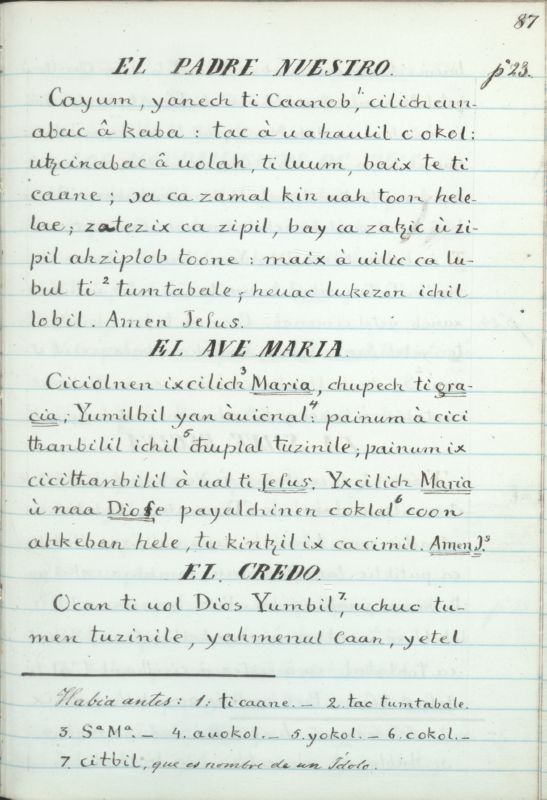 87
EL PADRE NUESTRO. pº 23.
Cayum, yanech ti Caanob,¹ cilichcun-
abac â kaba: tac à u ahaulil c okol:
utꜩcinabac â uolah, ti luum, baix te ti
caane; ɔa ca zamal kin uah toon hele-
lae; zatezix ca zipil, bay ca zatꜩic ù zi-
pil ahziplob toone: maix à uilic ca lu-
bul ti ² tumtabale; heuac lukezon ichil
lobil. Amen Jesus.
EL AVE MARIA.
Ciciolnen ixcilich³ Maria, chupech ti gra-
cia; Yumilbil yan àuicnal:⁴ painum à cici
thanbilil ichil⁵ chuplal tuzinile; painum ix
cicithanbilil à ual ti Jesus. Yxcilich Maria
ù naa Diose payalchinen c oklal⁶ coon
ahkeban hele, tu kintꜩil ix ca cimil. Amen J.ˢ
EL CREDO.
Ocan ti uol Dios Yumbil,⁷ uchuc tu-
men tuzinile, yahmenul Caan, yetel
Habia antes: 1: ti caane. _ 2. tac tumtabale.
3. Sª Mª. _ 4. auokol. _ 5. yokol. _ 6. cokol. _
7. citbil, que es nombre de un Ídolo.